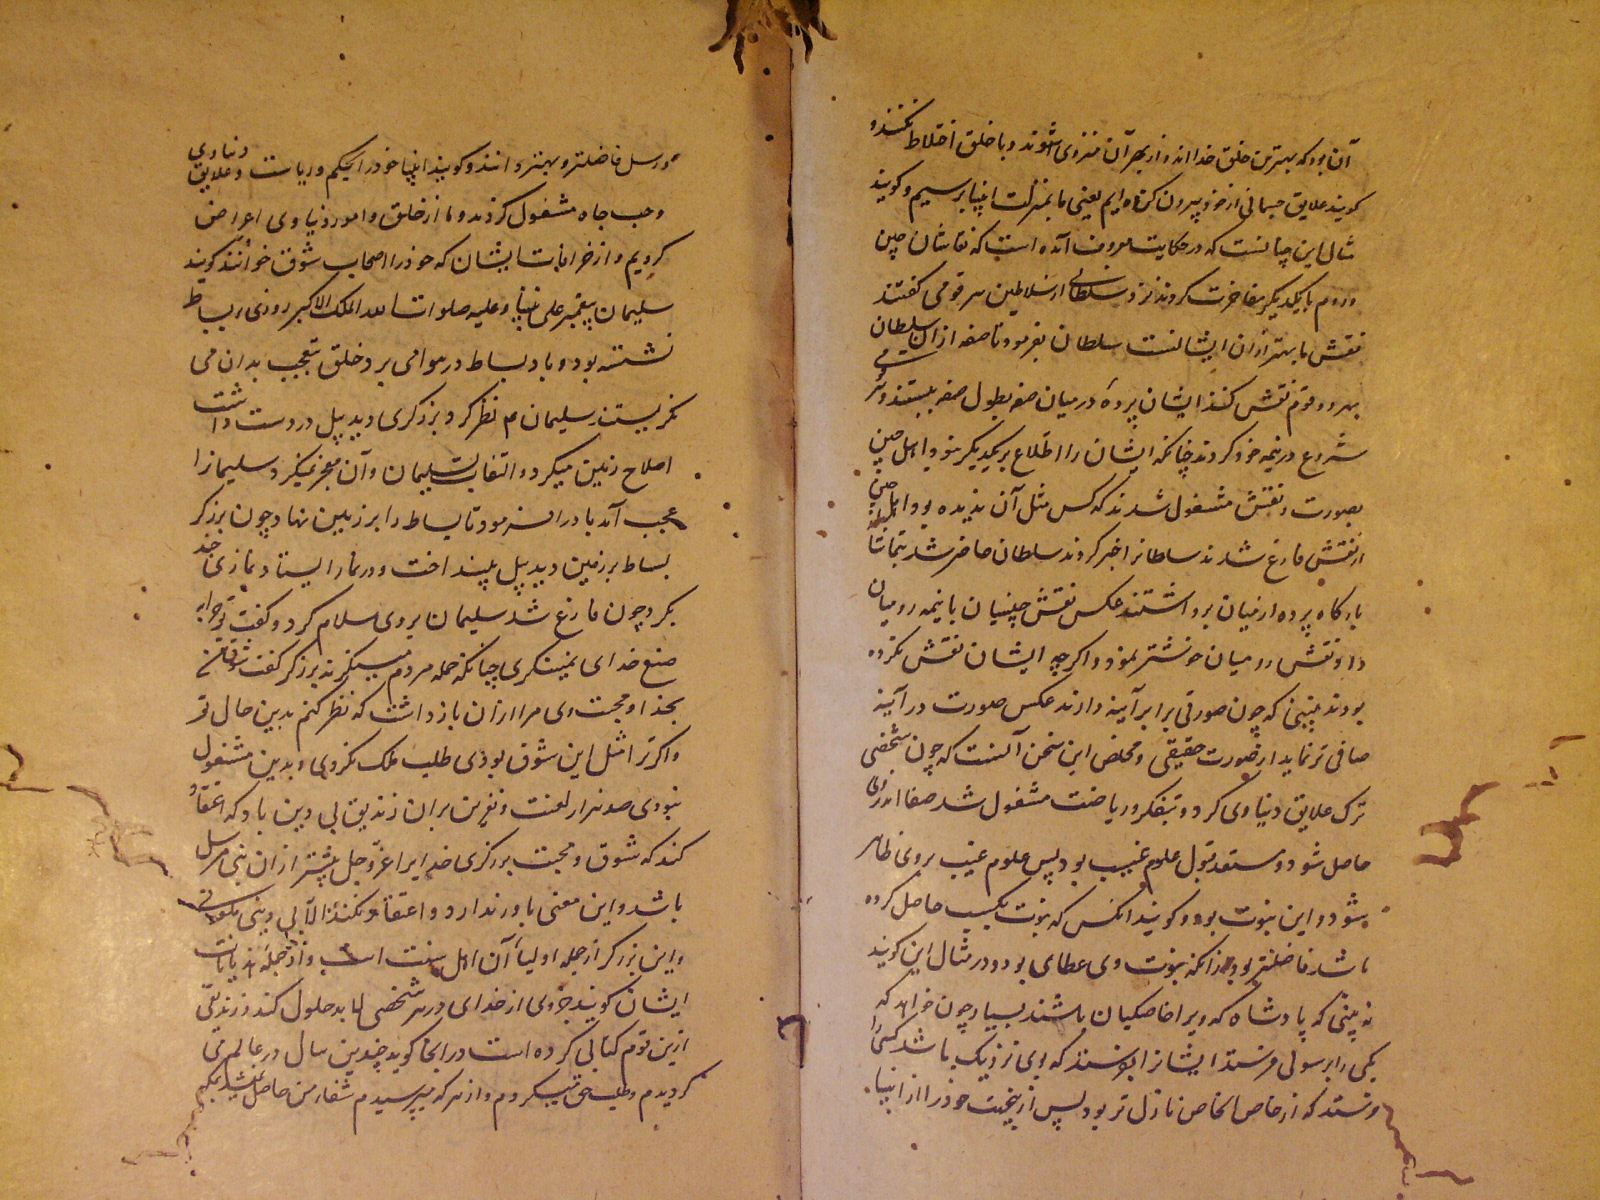 آن بود که بهترین خلق خدا اند و از بهر آن منزوی شوند و با خلق اختلاط نکنند و
کویند علایق جسمانی از خود بیرون کرده ایم یعنی ما بمنزلت انبیا برسیم و کویند
مثال این چنانست که در حکایت معروف آمده است که نقاشان چین
و روم با یکدیکر مفاخرت کردند نزد سلطانی از سلاطین هر قومی کفتند
نقش ما بهتر از ان ایشانست سلطان بفرمود تا صفه از ان سلطان
بهر دو قوم نقش کنند ایشان پرده در میان صفه بطول صفه ببستند و هر
شروع در نیمه خود کردند چنانکه ایشان را اطلاع بر یکدیکر نبود اهل چین
بصورت و نقش مشغول شدند که کس مثل آن ندیده بود
از نقش فارغ شدند سلطانرا خبر کردند سلطان حاضر شد بتماشا
بارکاه پرده از میان برداشتند عکس نقش چینیان با نیمه رومیان
داد و نقش رومیان خوشتر نمود و اکرچه ایشان نقش نکرده
بودند نبینی که چون صورتی برابر آینه دارند عکس صورت در آینه
صافی تر نماید از صورت حقیقی و مخلص این سخن آنست که چون شخصی
ترک علایق دنیاوی کرد و بتفکر و ریاضت مشغول شد صفا اندرون
حاصل شود و مستعد قبول علوم غیب بود پس علوم غیب بر وی ظاهر
شود و این نبوت بود و کویند آنکس که نبوت بکسب حاصل کرده
باشد فاضلتر بود از آنکه نبوت وی عطای بود و در مثال این کویند
نه بینی که پادشاه که ویرا خاصکیان باشند بسیار چون خواهد که
یکی را برسولی فرستد ایشانرا نفرستد که بوی نزدیک باشد کسی را
فرستد که از خاص الخاص نازل تر بود پس از این جهت خود را از انبیا
و رسل فاضلتر و بهتر دانند و کویند انبیا خود را بحکم و ریاست و علایق دنیاوی
و حب جاه مشغول کردند و ما از خلق و امور دنیاوی اعراض
کردیم و از خرافات ایشان که خود را اصحاب شوق خوانند کویند
سلیمان پیغمبر علی نبینا و علیه صلوات الله الملک الاکبر روزی بر بساط
نشسته بود و باد بساط در هوا می برد خلق بتعجب بدان می
نکریستند سلیمان ع نظر کرد برزکری دید بیل در دست داشت
اصلاح زمین میکرد و التفات بسلیمان و آن معجز نمیکرد سلیمانرا
عجب آمد باد را فرمود تا بساط را بر زمین نهاد چون برزکر
بساط بر زمین دید بیل بینداخت و در نماز ایستاد نمازی چند
بکرد چون فارغ شد سلیمان بر وی سلام کرد و کفت تو چرا به
صنع خدای نمینکری چنانکه جمله مردم مینکرند برزکر کفت شوق من
بخدا و محبت وی مرا از ان باز داشت که نظر کنم بدین حال تو
و اکر ترا مثل این شوق بودی طلب ملک نکردی و بدین مشغول
نبودی صد هزار لعنت و نفرین بر ان زندیق بی دین باد که اعتقاد
کند که شوق و محبت برزکری خدایرا عز و جل بیشتر از ان نبی مرسل
باشد و این معنی باور ندارد و اعتقاد نکند الا بی دینی
و این برزکر از جمله اولیاء آن اهل سنت است و از جمله هذیانات
ایشان کویند جزوی از خدای در هر شخصی اما بد حلول کند و زندیقی
ازین قوم کتابی کرده است در انجا کوید چندین سال در عالم می
کردیدم و طلب حق میکردم و از هر که میپرسیدم شفاء من حاصل نمیشد